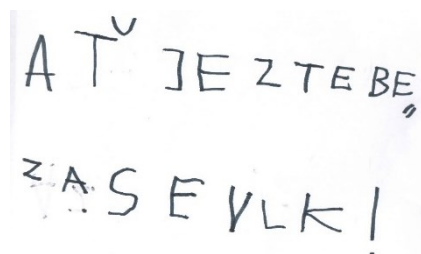 AŤ JE Z TEBE„
ZASE VLK!